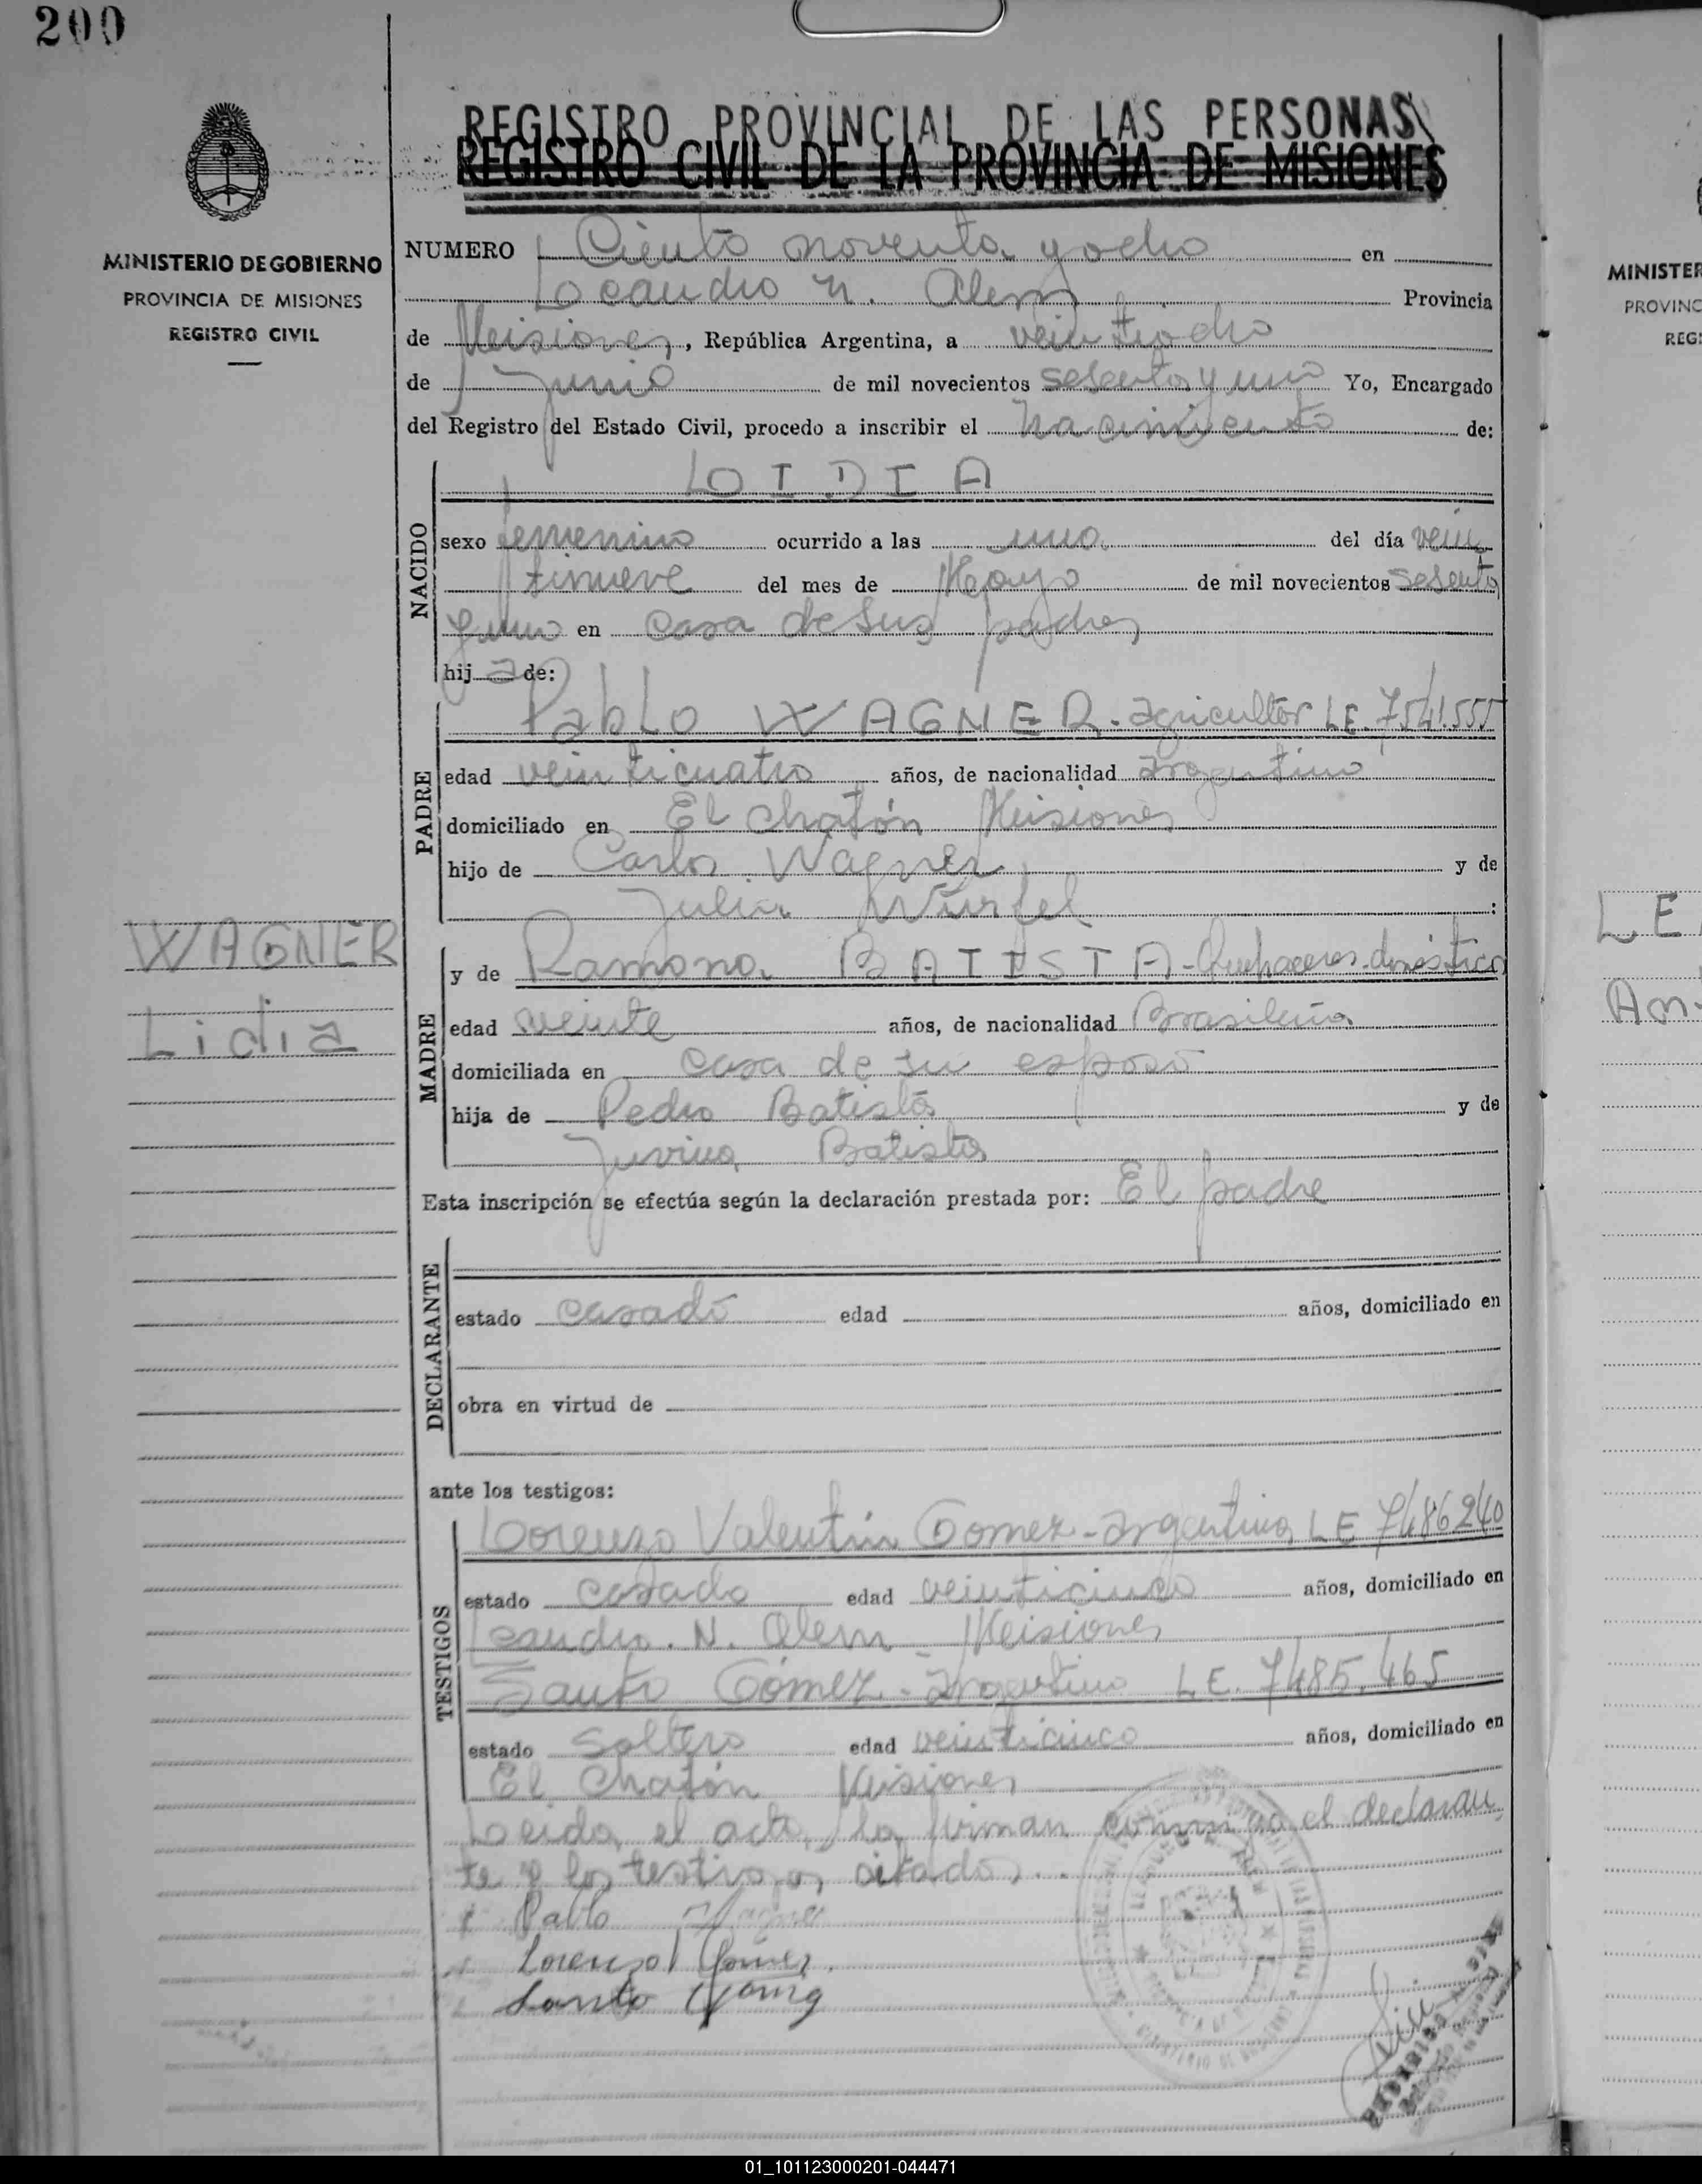 200
REGISTRO PROVINCIAL DE LAS PERSONAS
REGISTRO CIVIL DE LA PROVINCIA DE MISIONES
MINISTERIO DE GOBIERNO
PROVINCIA DE MISIONES
REGISTRO CIVIL
NUMERO Ciento noventa y ocho en
Leandro N. Alem Provincia
de Misiones, República Argentina, a veintiocho
de junio de mil novecientos sesenta y uno Yo, Encargado
del Registro del Estado Civil, procedo a inscribir el nacimiento de:
NACIDO
LIDIA
sexo femenino ocurrido a las una del día vein
tinueve del mes de Mayo de mil novecientos sesenta
y uno en casa de sus padres
hij a de:
PADRE
Pablo WAGNER. agricultor LE. 7541.555
edad veinticuatro años, de nacionalidad argentino
domiciliado en El Chatón Misiones
hijo de Carlos Wagner y de
Julia Würfel :
WAGNER
Lidia
MADRE
y de Ramona BATISTA - Quehaceres domésticos
edad veinte años, de nacionalidad Brasileña
domiciliada en casa de su esposo
hija de Pedro Batista y de
Juvina Batista
Esta inscripción se efectúa según la declaración prestada por: El padre
DECLARANTE
estado casado edad años, domiciliado en
obra en virtud de
ante los testigos:
TESTIGOS
Lorenzo Valentín Gomez - argentino LE 7486240
estado casado edad veinticinco años, domiciliado en
Leandro. N. Alem Misiones
Santo Gómez - argentino LE. 7485.465
estado soltero edad veinticinco años, domiciliado en
El Chatón Misiones
Leida el acta, la firman conmigo el declaran
te y los testigos citados...
Pablo Wagner
Lorenzo Gómez
Santo Gómez
MINISTER
PROVINC
REG
LE
An
01_101123000201-044471